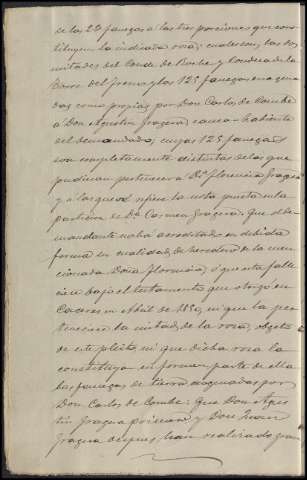 de las 25 fanegas a las tres porciones que cons
tituyen la indicada rosa; cuales son, las dos
mitades del Conde de Roche y Condesa de la
Torre del Fresno y las 125 fanegas enagena
das como propias por Don Carlos de Combe
á Don Agustin Gragera, causa-habiente
del demandado, cuyas 125 fanegas
son completamente distintas de las que
pudieran pertenecer a Dª Florencia Gragera
y a las que se refiere la nota puesta en la
particion de Dª Carmen Gragera: Que el de
mandante no ha acreditado en debida
forma su cualidad de heredero de la men
cionada Doña Florencia, ni que esta falle
ciera bajo el testamento que otorgó en
Caceres en Abril de 1850, ni que la per
teneciera la mitad de la rosa, objeto
de este pleito, ni que dicha rosa la
constituyan ni formen parte de ella
las fanegas de tierra adquiridas por
Don Carlos de Combe: Que Don Agus
tin Gragera primero y Don Juan
Gragera despues, han realizado gran